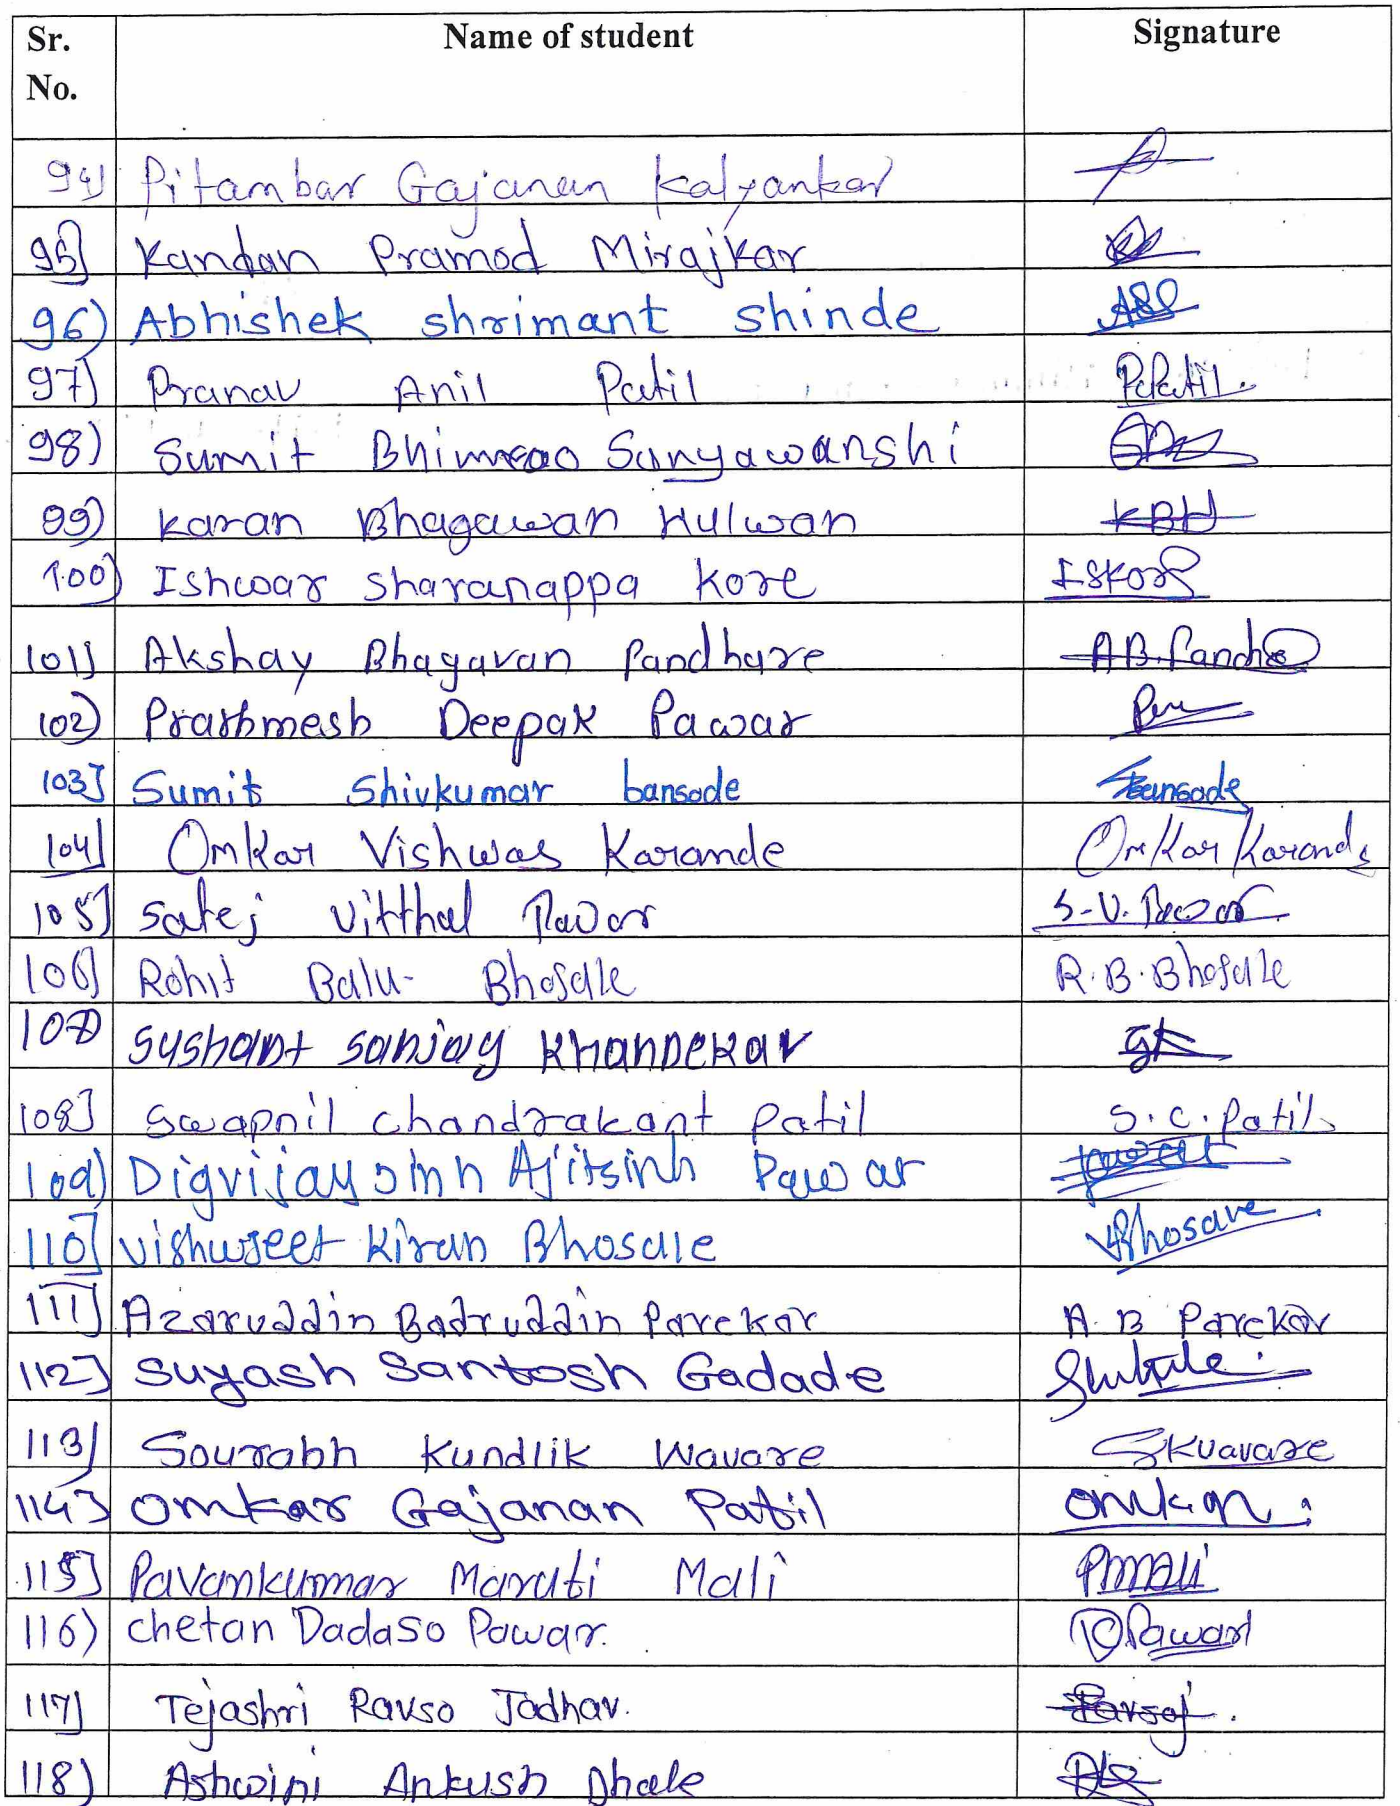 Sr. No. Name of student Signature
94) Pitambar Gajanan Kalyankar
95] Kandan Pramod Mirajkar
96) Abhishek shrimant shinde ASS
97] Pranav Anil Patil P.Patil.
98) Sumit Bhimrao Suryawanshi
99) Karan Bhagawan Hulwan KBH
100) Ishwar Sharanappa Kore ISKore
101] Akshay Bhagavan Pandhare A.B.Pandh
102) Prathmesh Deepak Pawar
103] Sumit Shivkumar bansode bansode
104] Omkar Vishwas Karande Omkar Karande
105] Satej Vitthal Pawar S.V. Pawar
106] Rohit Balu Bhosale R.B.Bhosale
107) Sushant Sanjay KHANDEKAR
108] Swapnil Chandrakant Patil S.C.Patil
109) Digvijaysinh Ajitsinh Pawar Pawar
110] Vishwjeet Kiran Bhosale VBhosale
111] Azaruddin Badruddin Parekar A.B Parekar
112] Suyash Santosh Gadade
113] Sourabh Kundlik Wavare SKWavare
114] Omkar Gajanan Patil Omkar
115] Pavankumar Maruti Mali PMMali
116) chetan Dadaso Pawar. Pawar
117] Tejashri Ravso Jadhav.
118) Ashwini Ankush Dhale